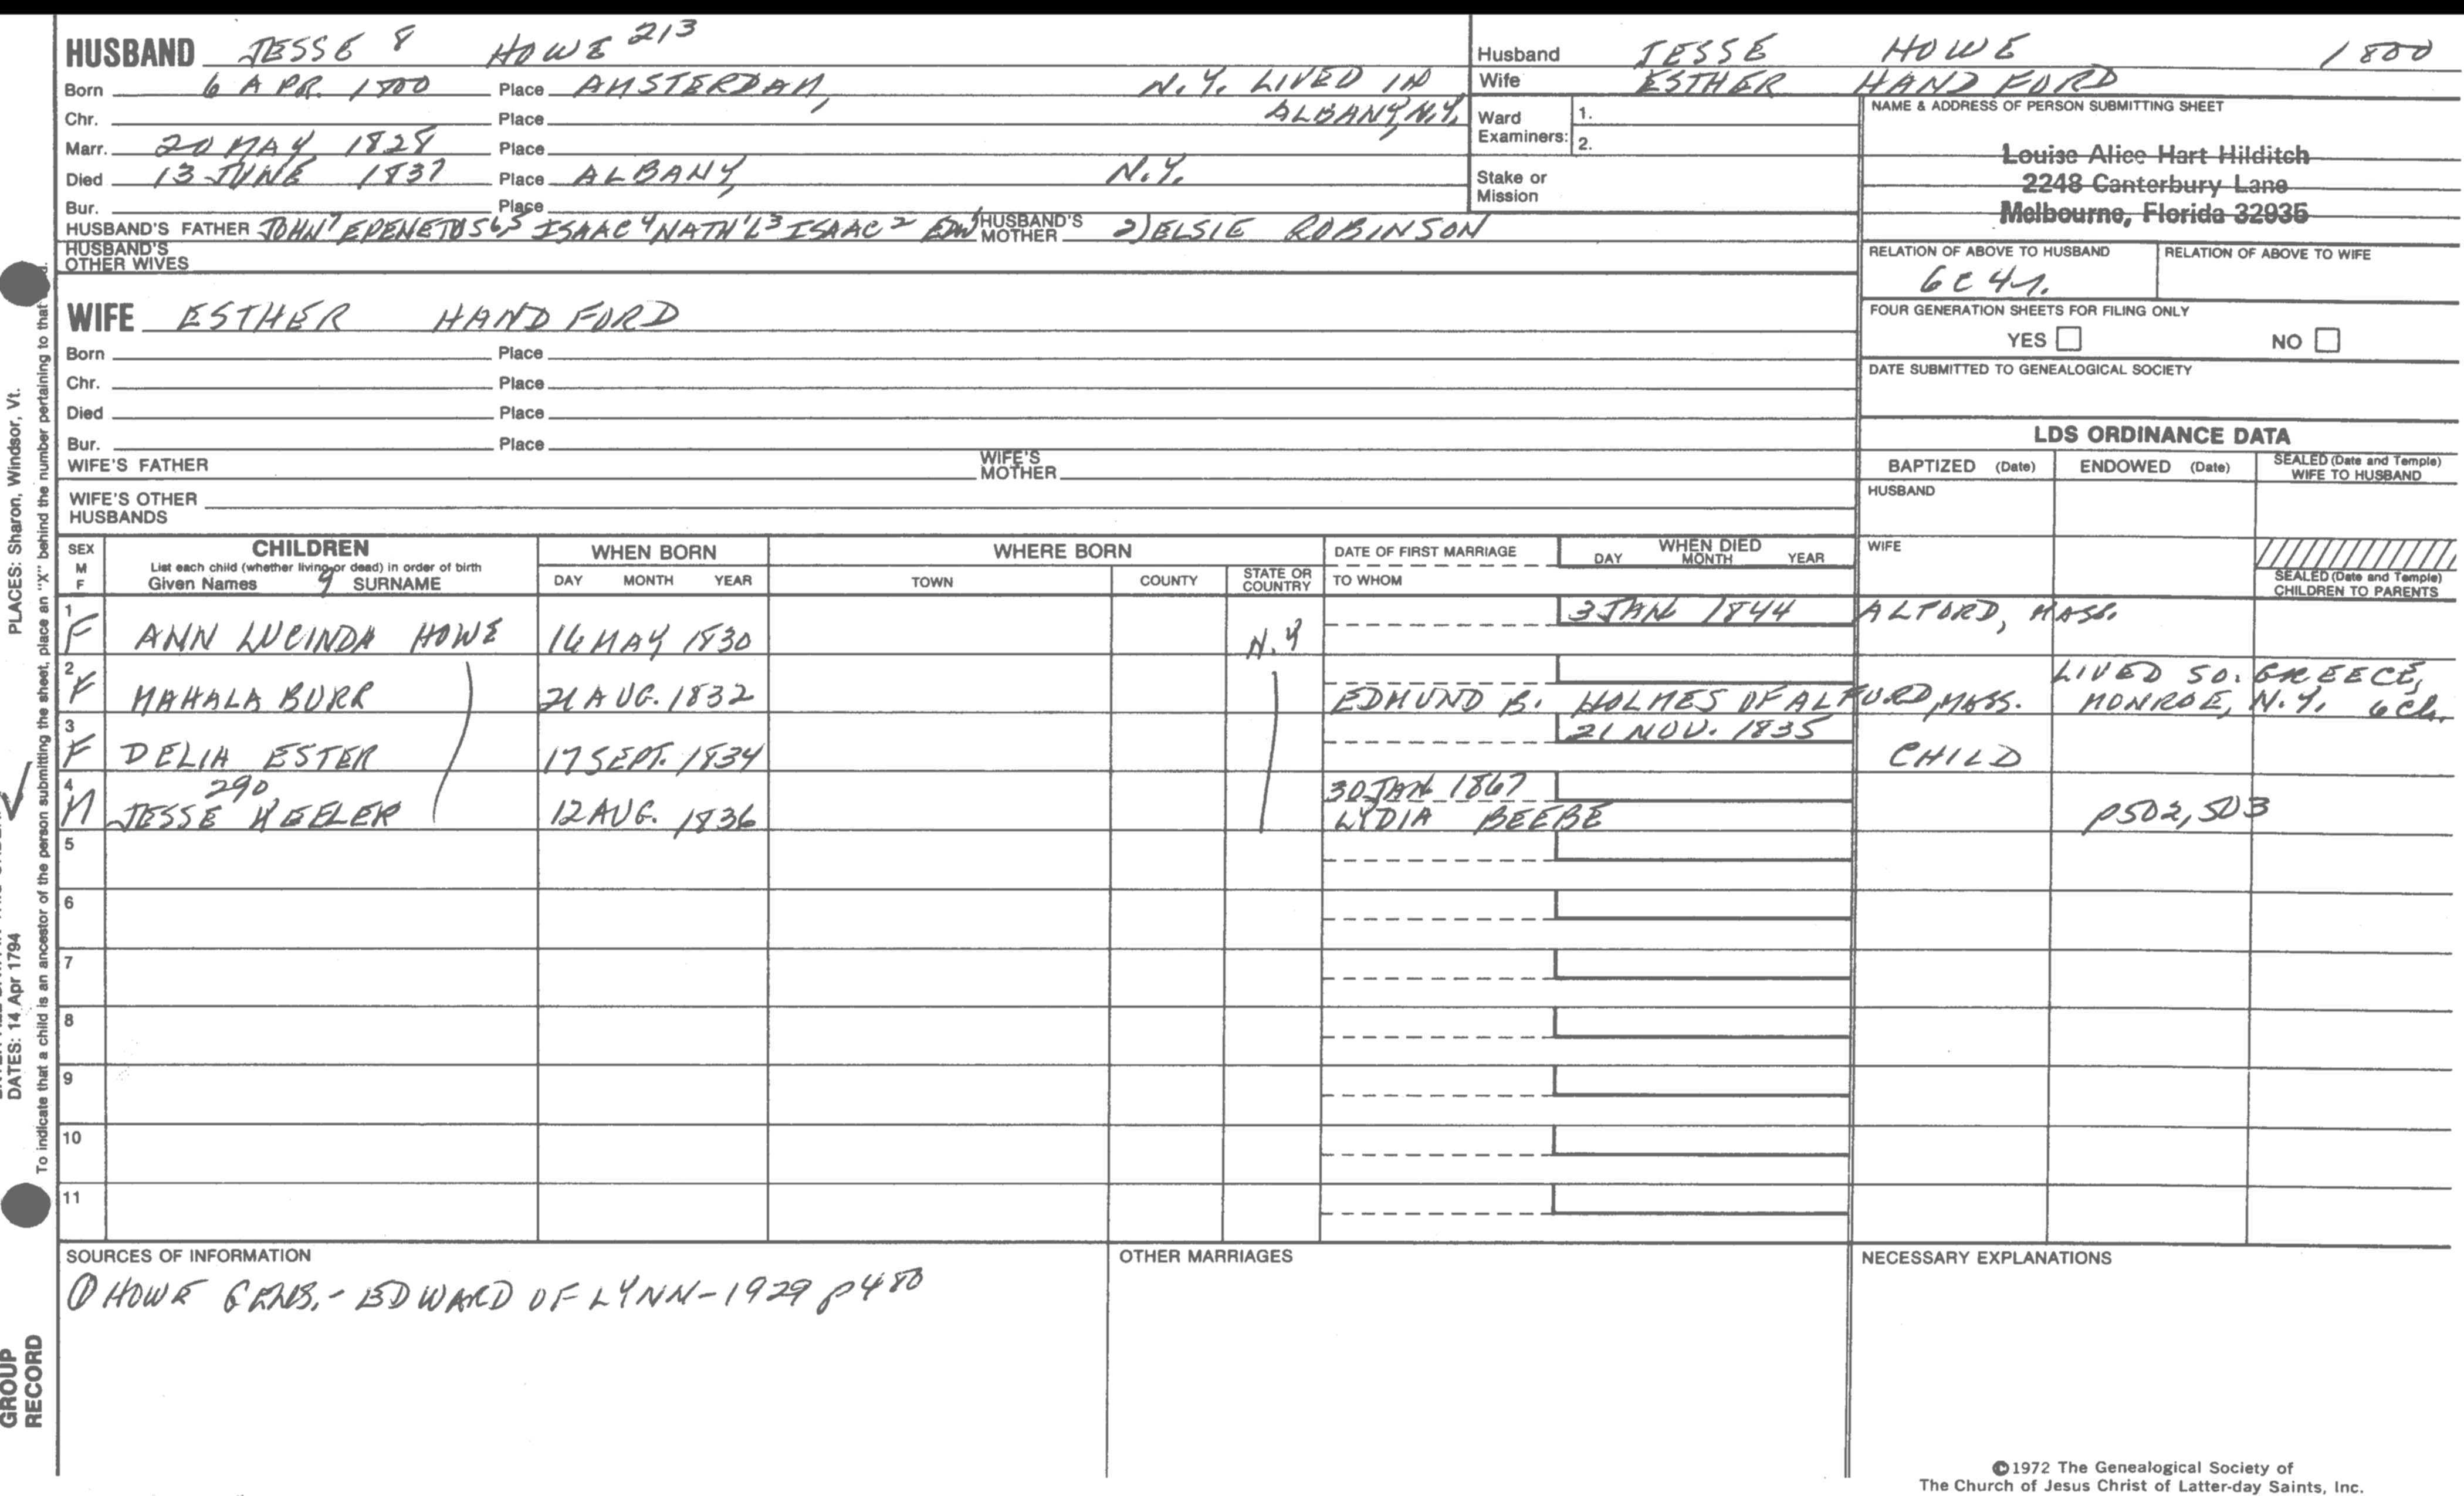 HUSBAND JESSE 8 HOWE 213
Born 6 APR. 1800 Place AMSTERDAM, N.Y. LIVED IN
Chr. Place ALBANY, N.Y.
Marr. 20 MAY 1828 Place
Died 13 JUNE 1837 Place ALBANY, N.Y.
Bur. Place
HUSBAND'S FATHER JOHN 7 EPENETUS 6,5 ISAAC 4 NATH'L 3 ISAAC 2 EDW 1 HUSBAND'S MOTHER 2) ELSIE ROBINSON
HUSBAND'S OTHER WIVES
Husband JESSE HOWE 1800
Wife ESTHER HANDFORD
Ward Examiners: 1.
2.
Stake or Mission
NAME & ADDRESS OF PERSON SUBMITTING SHEET
Louise Alice Hart Hilditch
2248 Canterbury Lane
Melbourne, Florida 32935
RELATION OF ABOVE TO HUSBAND RELATION OF ABOVE TO WIFE
6C4r.
FOUR GENERATION SHEETS FOR FILING ONLY
YES NO
DATE SUBMITTED TO GENEALOGICAL SOCIETY
WIFE ESTHER HANDFORD
Born Place
Chr. Place
Died Place
Bur. Place
WIFE'S FATHER WIFE'S MOTHER
WIFE'S OTHER HUSBANDS
LDS ORDINANCE DATA
BAPTIZED (Date) ENDOWED (Date) SEALED (Date and Temple) WIFE TO HUSBAND
HUSBAND
WIFE
SEALED (Date and Temple) CHILDREN TO PARENTS
SEX M F
CHILDREN
List each child (whether living or dead) in order of birth
Given Names 9 SURNAME
WHEN BORN
DAY MONTH YEAR
WHERE BORN
TOWN COUNTY STATE OR COUNTRY
DATE OF FIRST MARRIAGE
TO WHOM
WHEN DIED
DAY MONTH YEAR
1 F ANN LUCINDA HOWE 16 MAY 1830 N.Y 3 JAN 1844 ALFORD, MASS.
2 F MAHALA BURR 21 AUG. 1832 EDMUND B. HOLMES OF ALFORD, MASS. LIVED SO. GREECE, MONROE, N.Y. 6 Ch.
3 F DELIA ESTER 17 SEPT. 1834 21 NOV. 1835 CHILD
4 M JESSE KEELER 290 12 AUG. 1836 30 JAN 1867 LYDIA BEEBE p502,503
5
6
7
8
9
10
11
SOURCES OF INFORMATION
① HOWE GENS. - EDWARD OF LYNN - 1929 p480
OTHER MARRIAGES
NECESSARY EXPLANATIONS
©1972 The Genealogical Society of
The Church of Jesus Christ of Latter-day Saints, Inc.
PLACES: Sharon, Windsor, Vt.
DATES: 14 Apr 1794
To indicate that a child is an ancestor of the person submitting the sheet, place an "X" behind the number pertaining to that
GROUP
RECORD